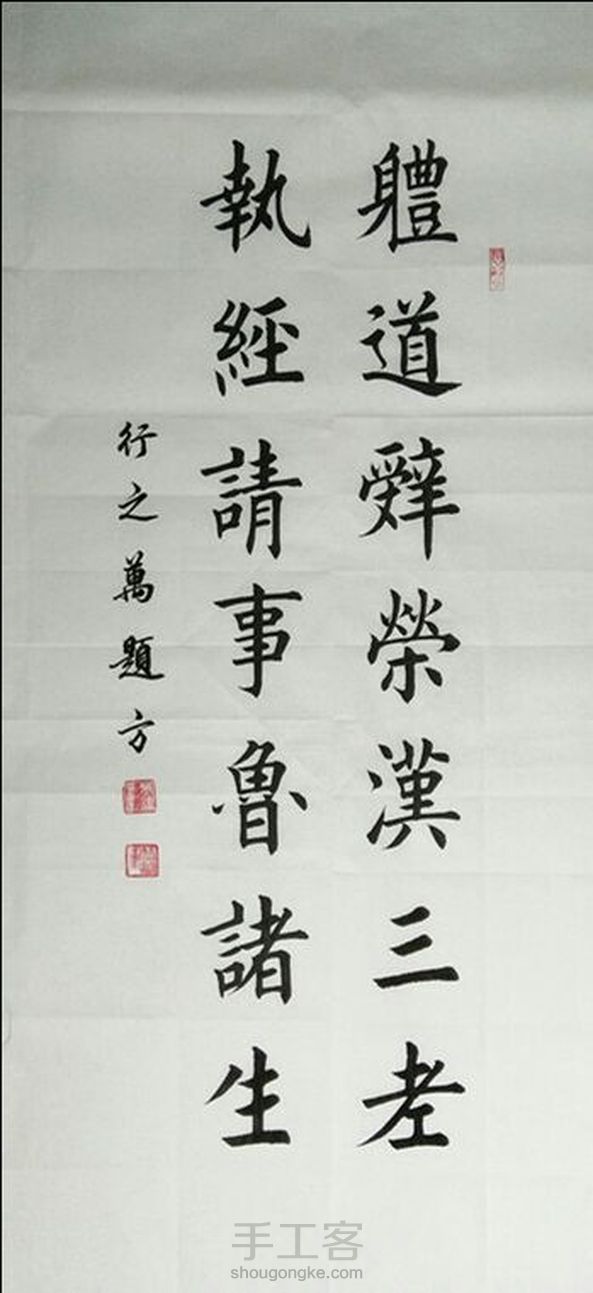 軆道辤榮漢三老
執經請事魯諸生
行之萬題方
手工客
shougongke.com